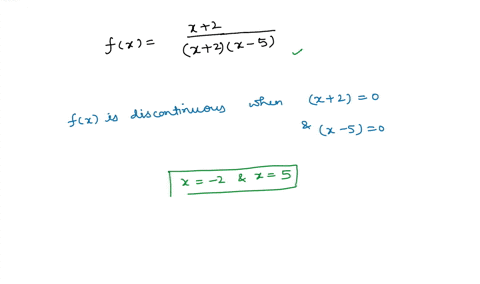 f(x) = x+2 / (x+2)(x-5) ✓
f(x) is discontinuous when (x+2) = 0
& (x-5) = 0
x = -2 & x = 5